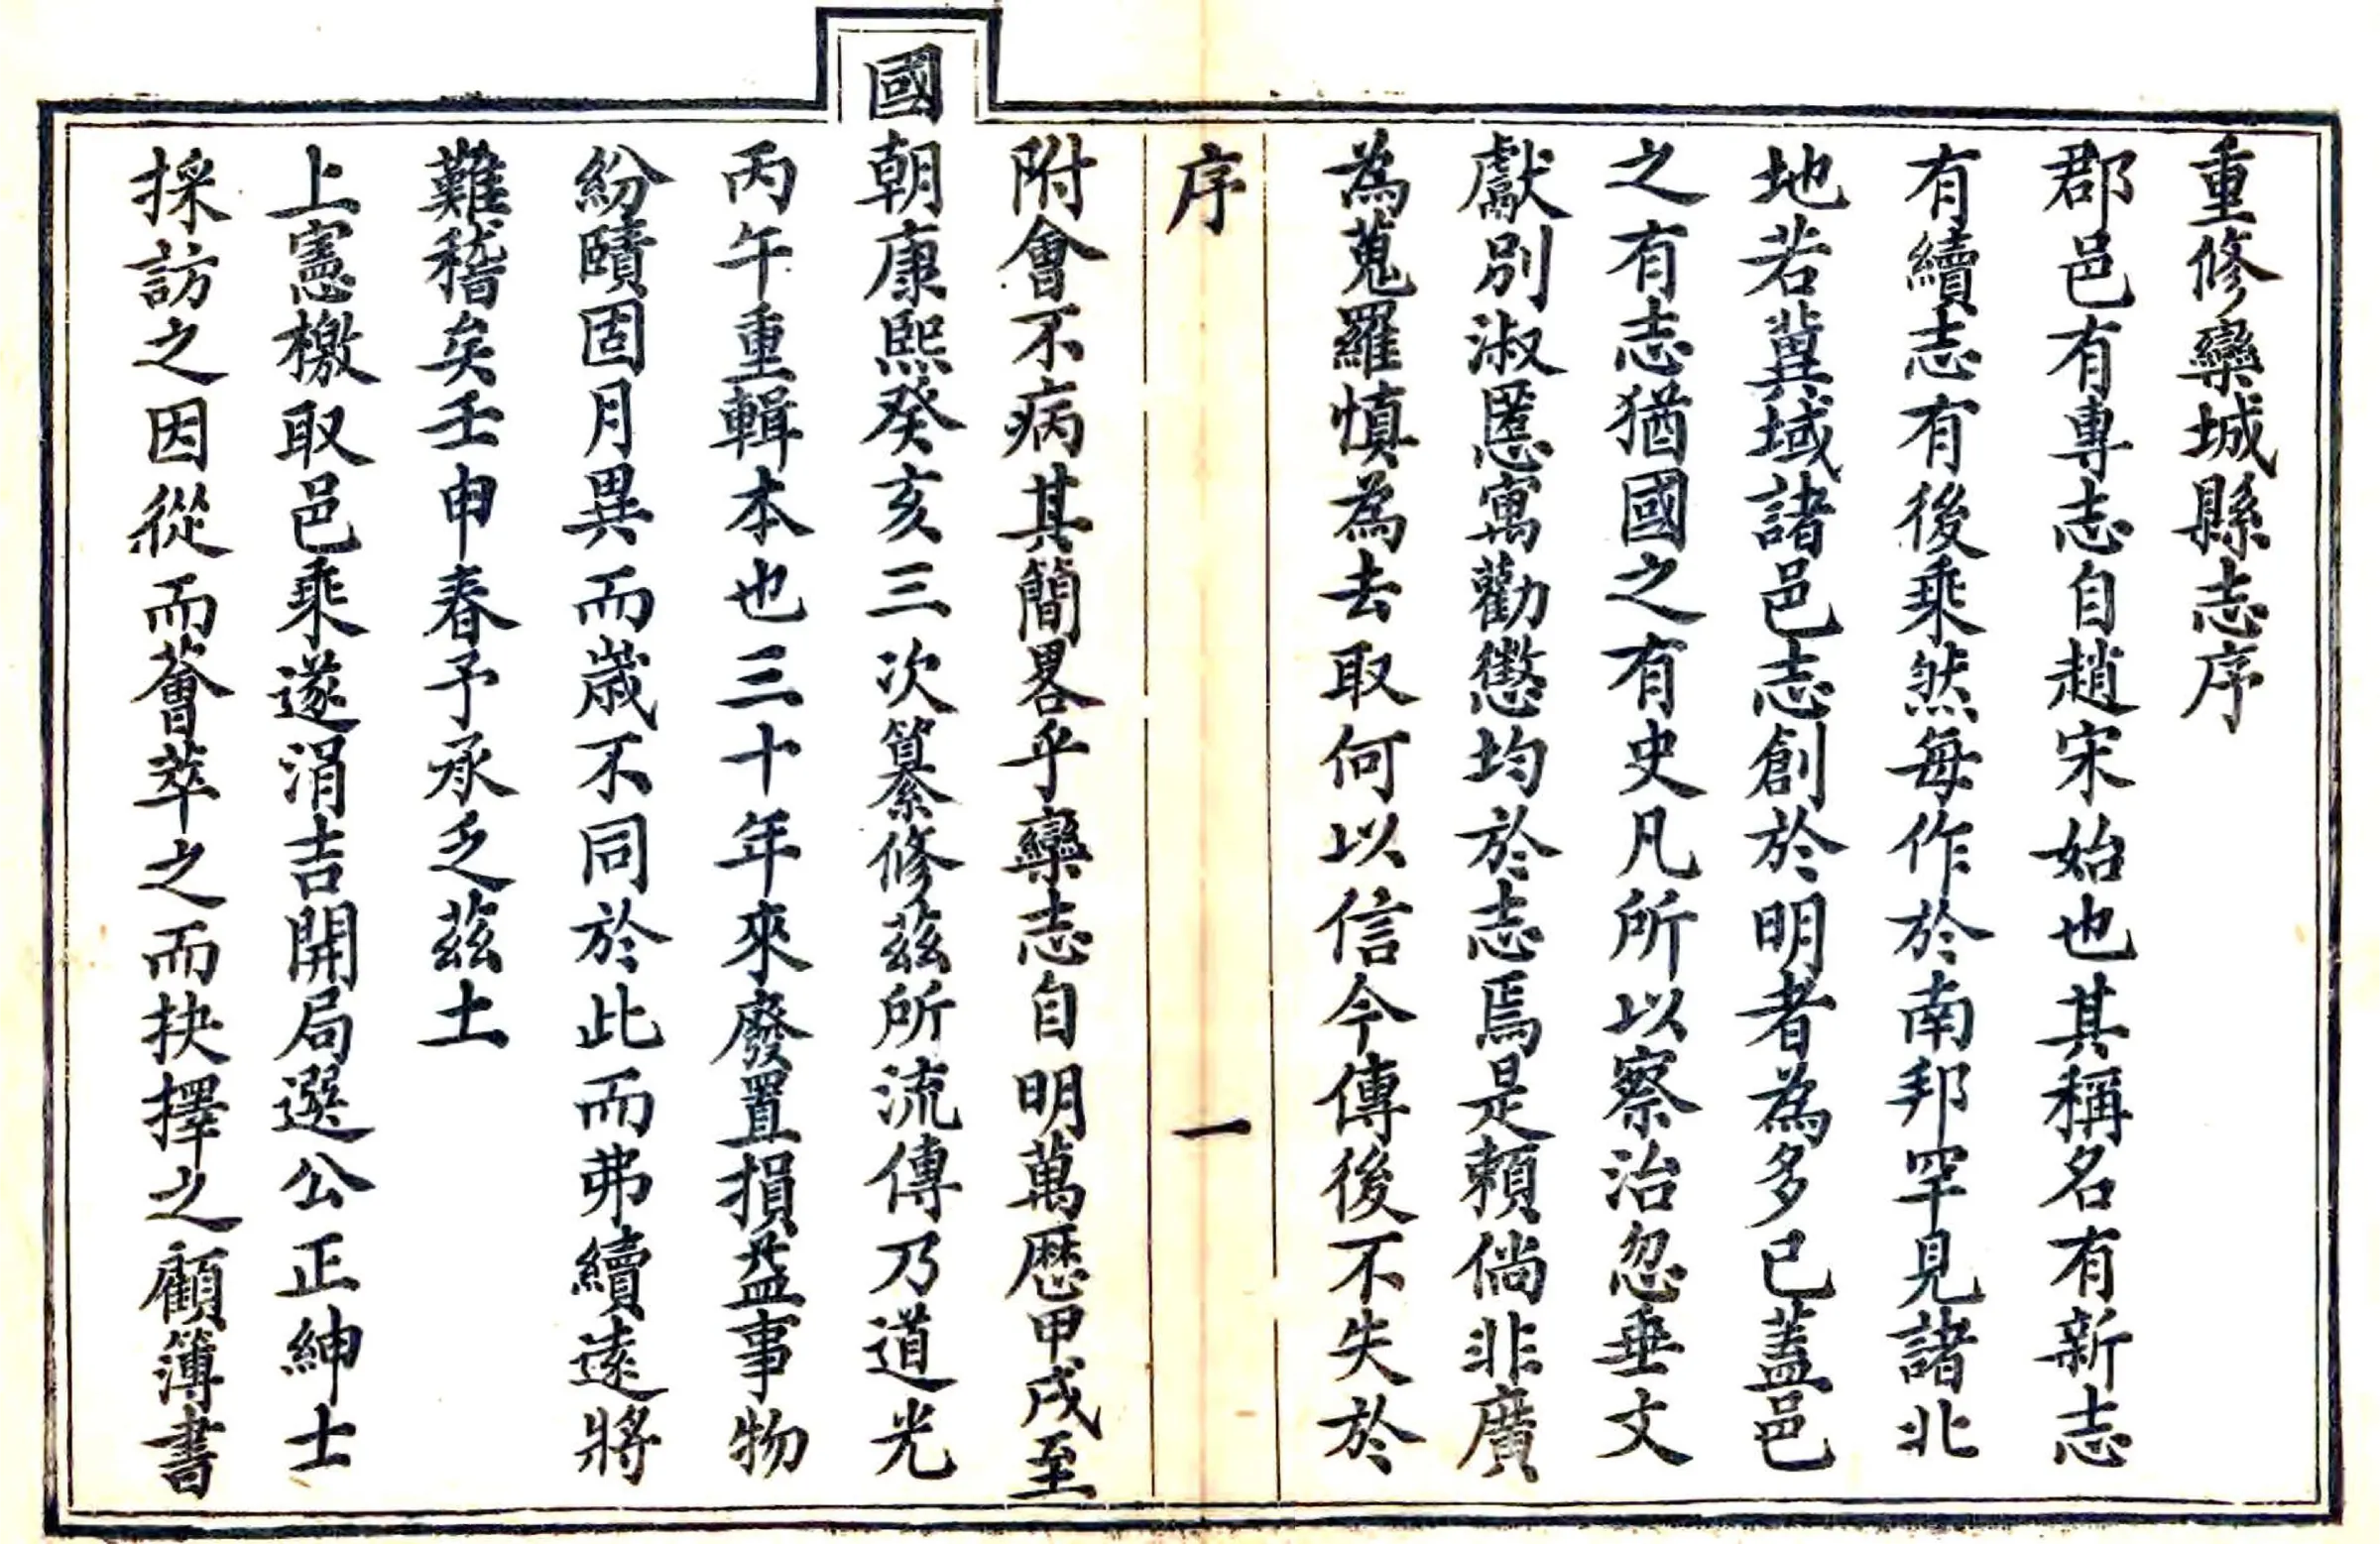 重修欒城縣志序
郡邑有專志自趙宋始也其稱名有新志
有續志有後乘然每作於南邦罕見諸北
地若冀域諸邑志創於明者為多已蓋邑
之有志猶國之有史凡所以察治忽垂文
獻別淑慝寓勸懲均於志焉是賴倘非廣
為蒐羅慎為去取何以信今傳後不失於
序 一
附會不病其簡畧乎欒志自明萬歴甲戌至
國朝康熙癸亥三次纂修茲所流傳乃道光
丙午重輯本也三十年來廢置損益事物
紛賾固月異而歲不同於此而弗續遠將
難稽矣壬申春予承乏茲土
上憲檄取邑乘遂涓吉開局選公正紳士
採訪之因從而薈萃之而抉擇之顧簿書